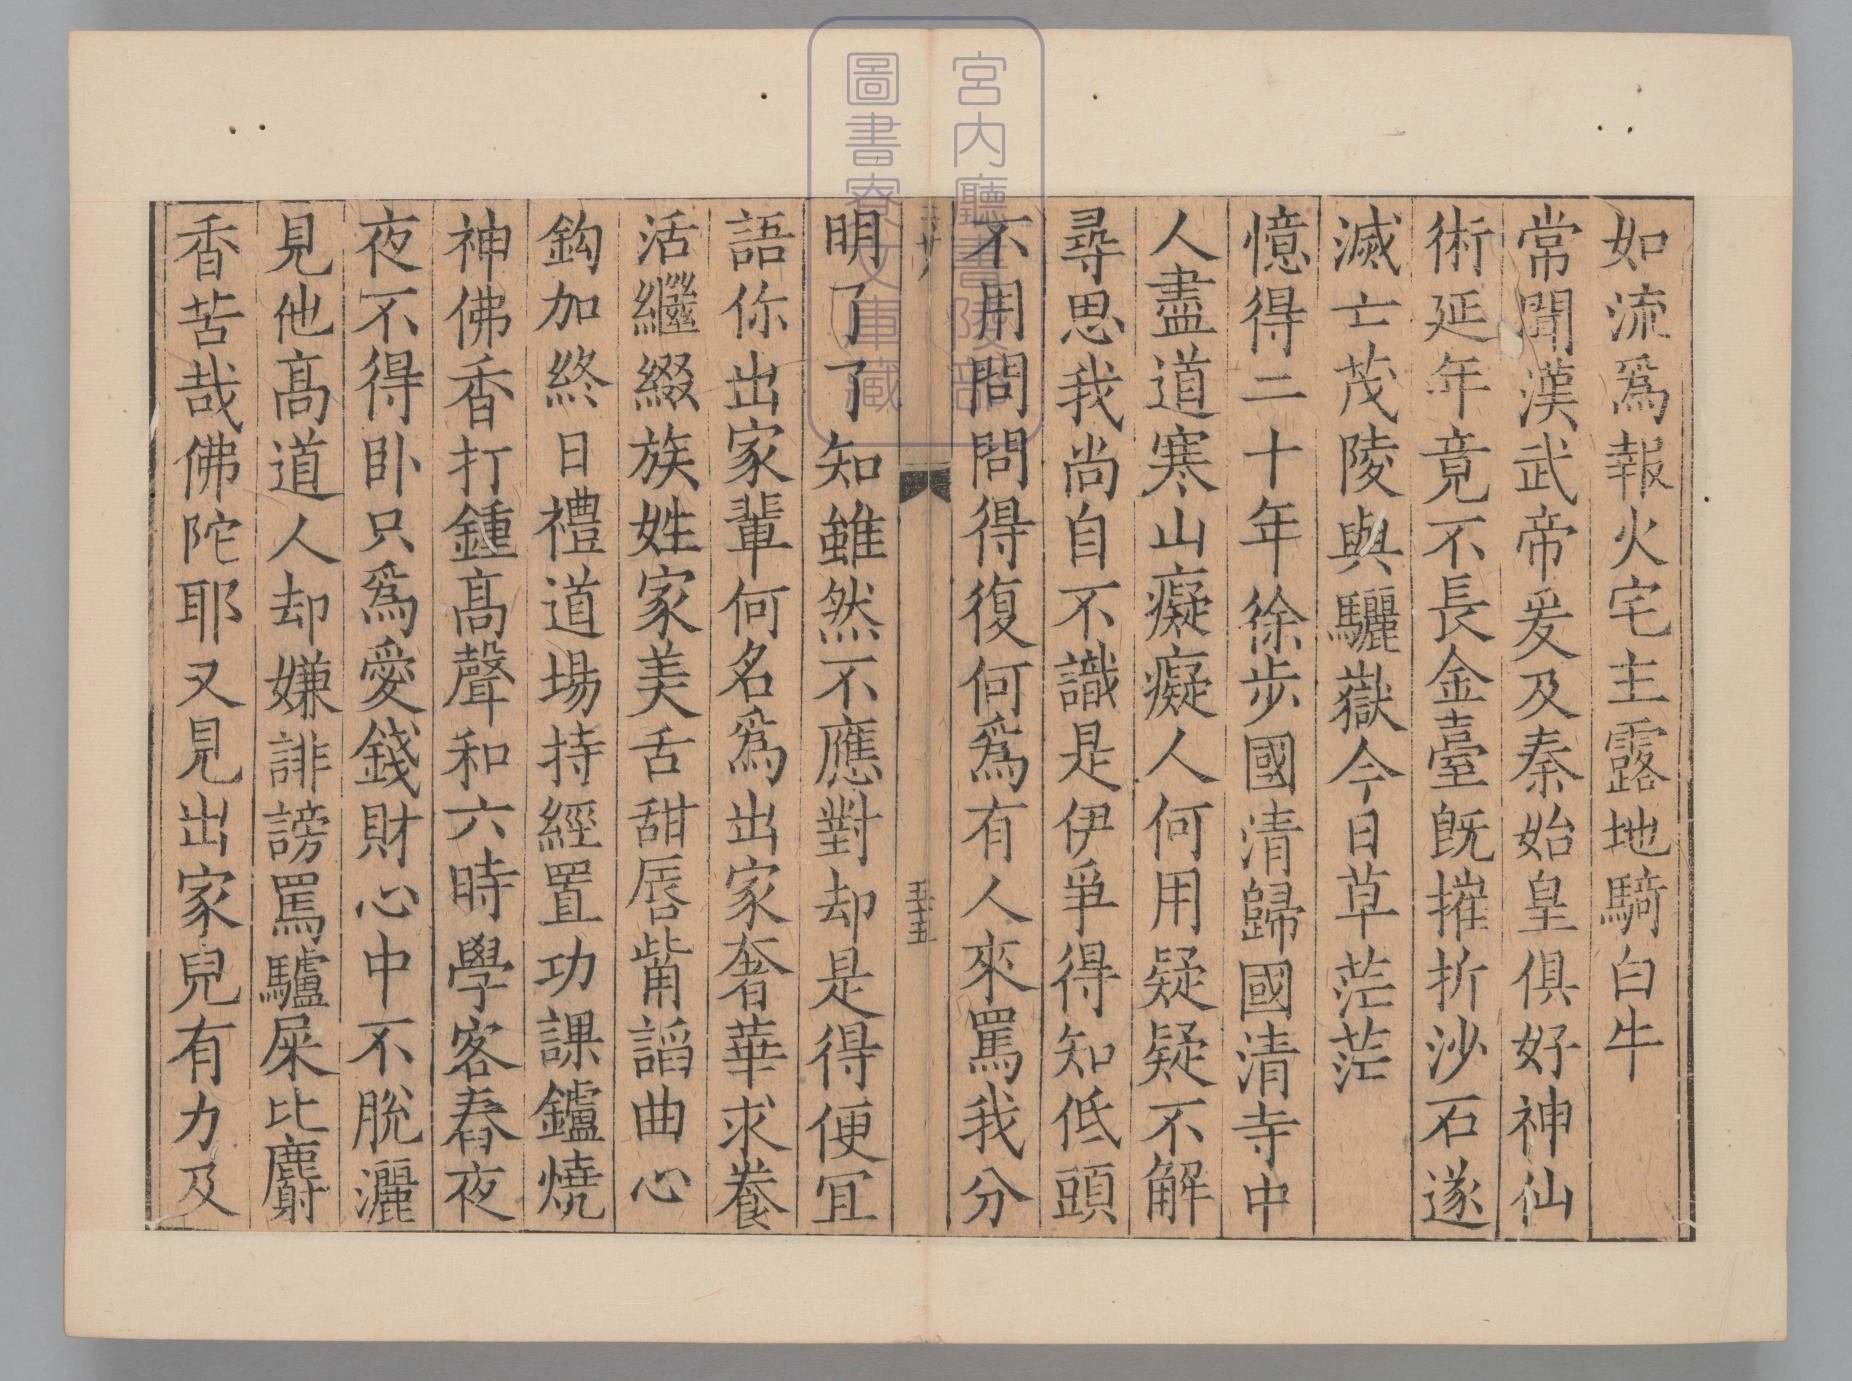 如流爲報火宅主露地騎白牛
常聞漢武帝爰及秦始皇俱好神仙
術延年竟不長金臺既摧折沙石遂
滅亡茂陵與驪嶽今日草茫茫
憶得二十年徐步國清歸國清寺中
人盡道寒山癡癡人何用疑疑不解
尋思我尚自不識是伊爭得知低頭
不用問問得復何爲有人來罵我分
五十五
明了了知雖然不應對却是得便宜
語你出家輩何名爲出家奢華求養
活繼綴族姓家美舌甜脣觜諂曲心
鈎加終日禮道場持經置功課鑪燒
神佛香打鍾高聲和六時學客舂夜
夜不得卧只爲愛錢財心中不脫灑
見他高道人却嫌誹謗罵驢屎比麝
香苦哉佛陀耶又見出家兒有力及
宮內廳書陵部
圖書寮文庫藏